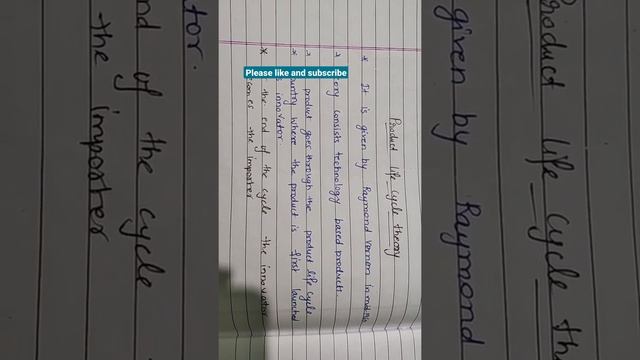 Product life cycle theory
* It is given by Raymond Vernon in
ory consists technology based products.
product goes through the product life cycle
* untry where the product is first launched
innovator.
* the end of the cycle the innovator
comes the importer
Please like and subscribe
Product life cycle th
given by Raymond
tor.
nd of the cycle
the importer